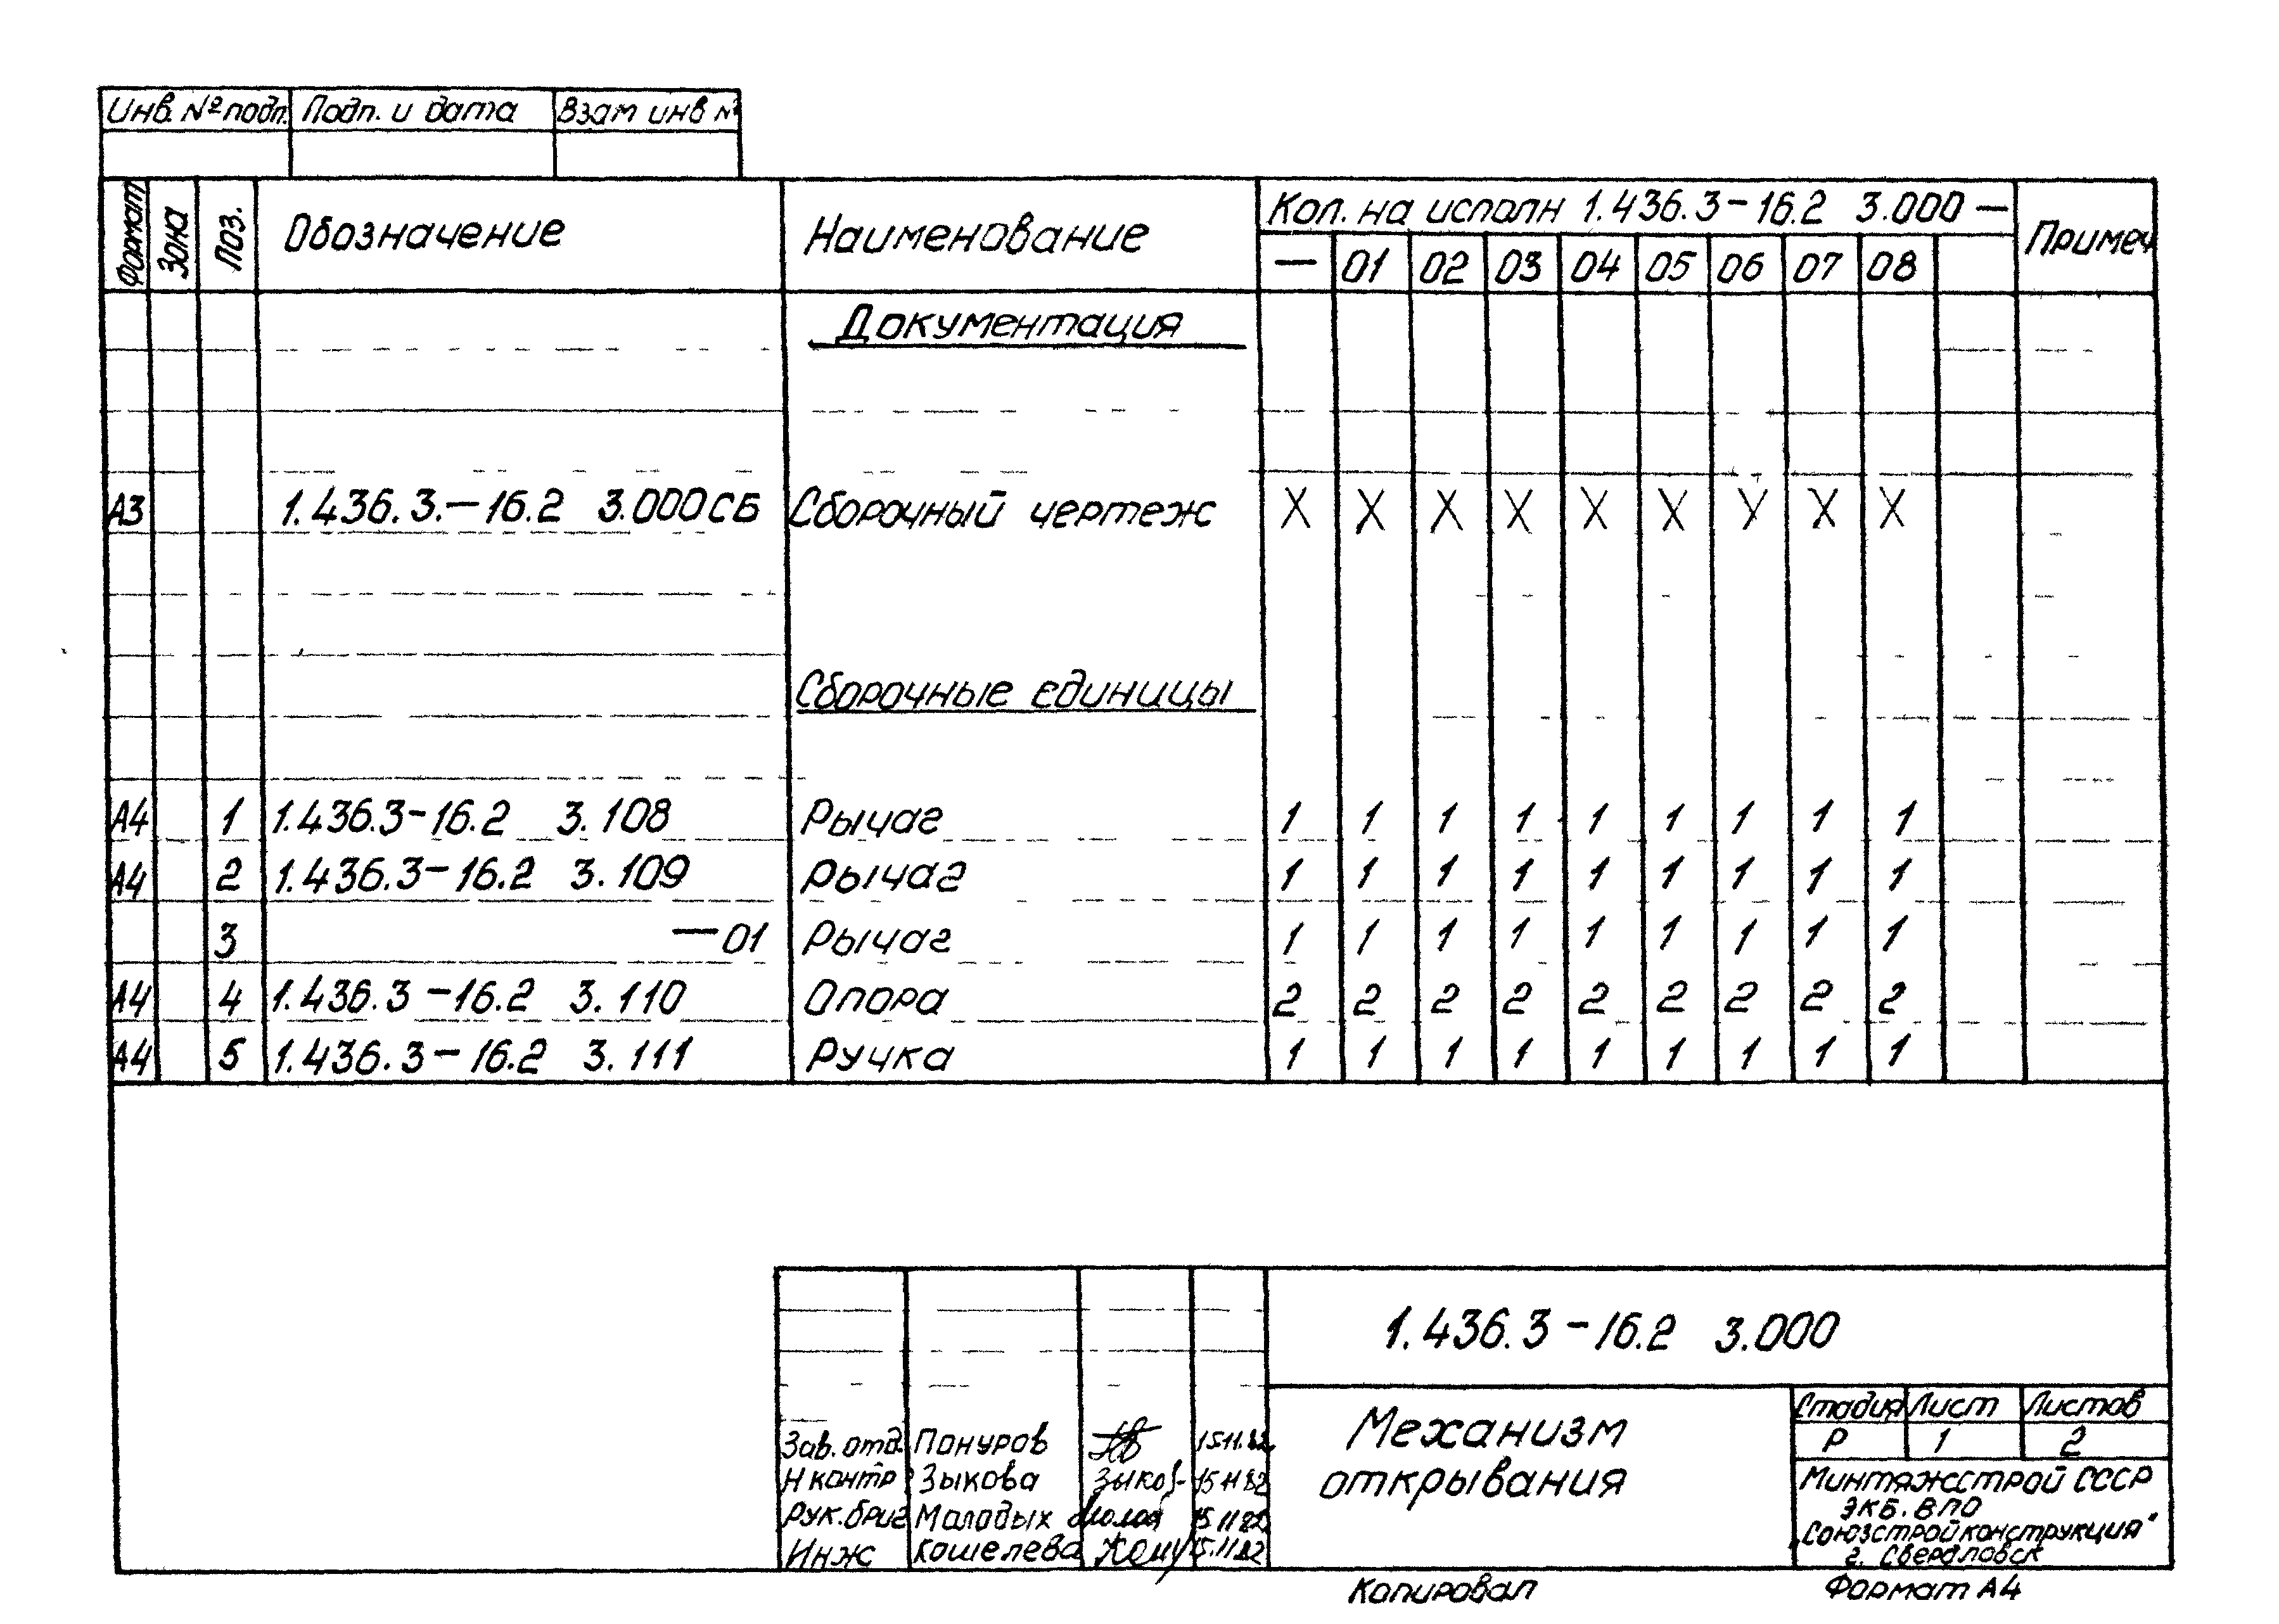 Инв. № подп. Подп. и дата Взам инв №
Формат Зона Поз. Обозначение Наименование Кол. на исполн 1.436.3-16.2 3.000 — Примеч
— 01 02 03 04 05 06 07 08
Документация
А3 1.436.3.-16.2 3.000СБ Сборочный чертеж X X X X X X X X X
Сборочные единицы
А4 1 1.436.3-16.2 3.108 Рычаг 1 1 1 1 1 1 1 1 1
А4 2 1.436.3-16.2 3.109 Рычаг 1 1 1 1 1 1 1 1 1
3 —01 Рычаг 1 1 1 1 1 1 1 1 1
А4 4 1.436.3-16.2 3.110 Опора 2 2 2 2 2 2 2 2 2
А4 5 1.436.3-16.2 3.111 Ручка 1 1 1 1 1 1 1 1 1
1.436.3-16.2 3.000
Механизм
открывания
Стадия Лист Листов
Р 1 2
Зав. отд. Понуров 15.11.82
Н контр Зыкова Зыков 15 11 82
Рук. бриг Молодых 15.11 82
Инж Кошелева 15.11 82
Минтяжстрой СССР
ЭКБ. ВПО
„Союзстройконструкция"
г. Свердловск
Копировал Формат А4